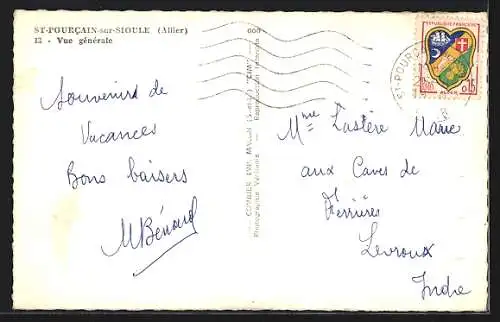 ST-POURÇAIN-sur-SIOULE (Allier)
13 - Vue générale
Souvenirs de
Vacances
Bons baisers
MBénard
COMBIER IMP. MACON
Photographie Véritable
Reproduction Interdite
ST-POUR
REPUBLIQUE FRANÇAISE
ALGER
0,15
Mme Lastère Marie
aux Caves de
Ferrières
Levroux
Indre